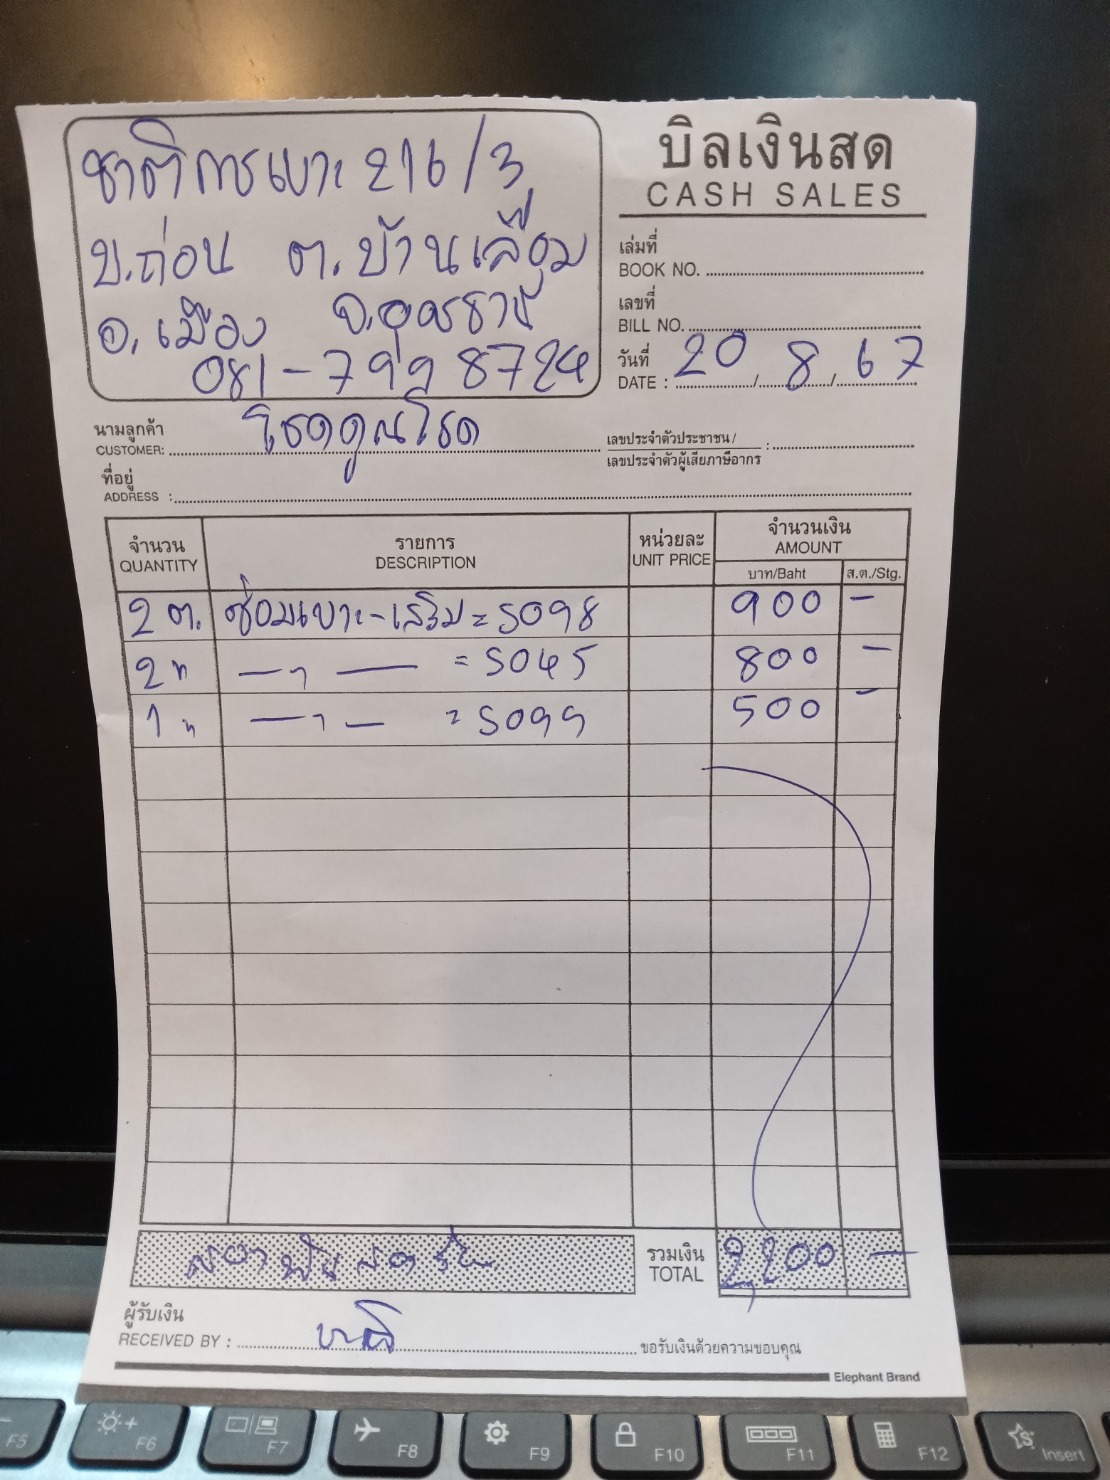 บิลเงินสด
CASH SALES
ชาติการเบาะ 216/3
บ.ถ่อน ต.บ้านเลื่อม
อ.เมือง จ.อุดรธานี
081-799 8724
เล่มที่
BOOK NO.
เลขที่
BILL NO.
วันที่
DATE : 20 / 8 / 67
นามลูกค้า
CUSTOMER: โชคคูณโชค
เลขประจำตัวประชาชน /
เลขประจำตัวผู้เสียภาษีอากร :
ที่อยู่
ADDRESS :
จำนวน รายการ หน่วยละ จำนวนเงิน
QUANTITY DESCRIPTION UNIT PRICE AMOUNT
บาท/Baht ส.ต./Stg.
2 ต. ซ่อมเบาะ-เสริม = S098 900 -
2 " —"— = S045 800 -
1 " —"— = S099 500 -
รวมเงิน
TOTAL 2,200 -
ผู้รับเงิน
RECEIVED BY : ขอรับเงินด้วยความขอบคุณ
Elephant Brand
F5 F6 F7 F8 F9 F10 F11 F12 Insert